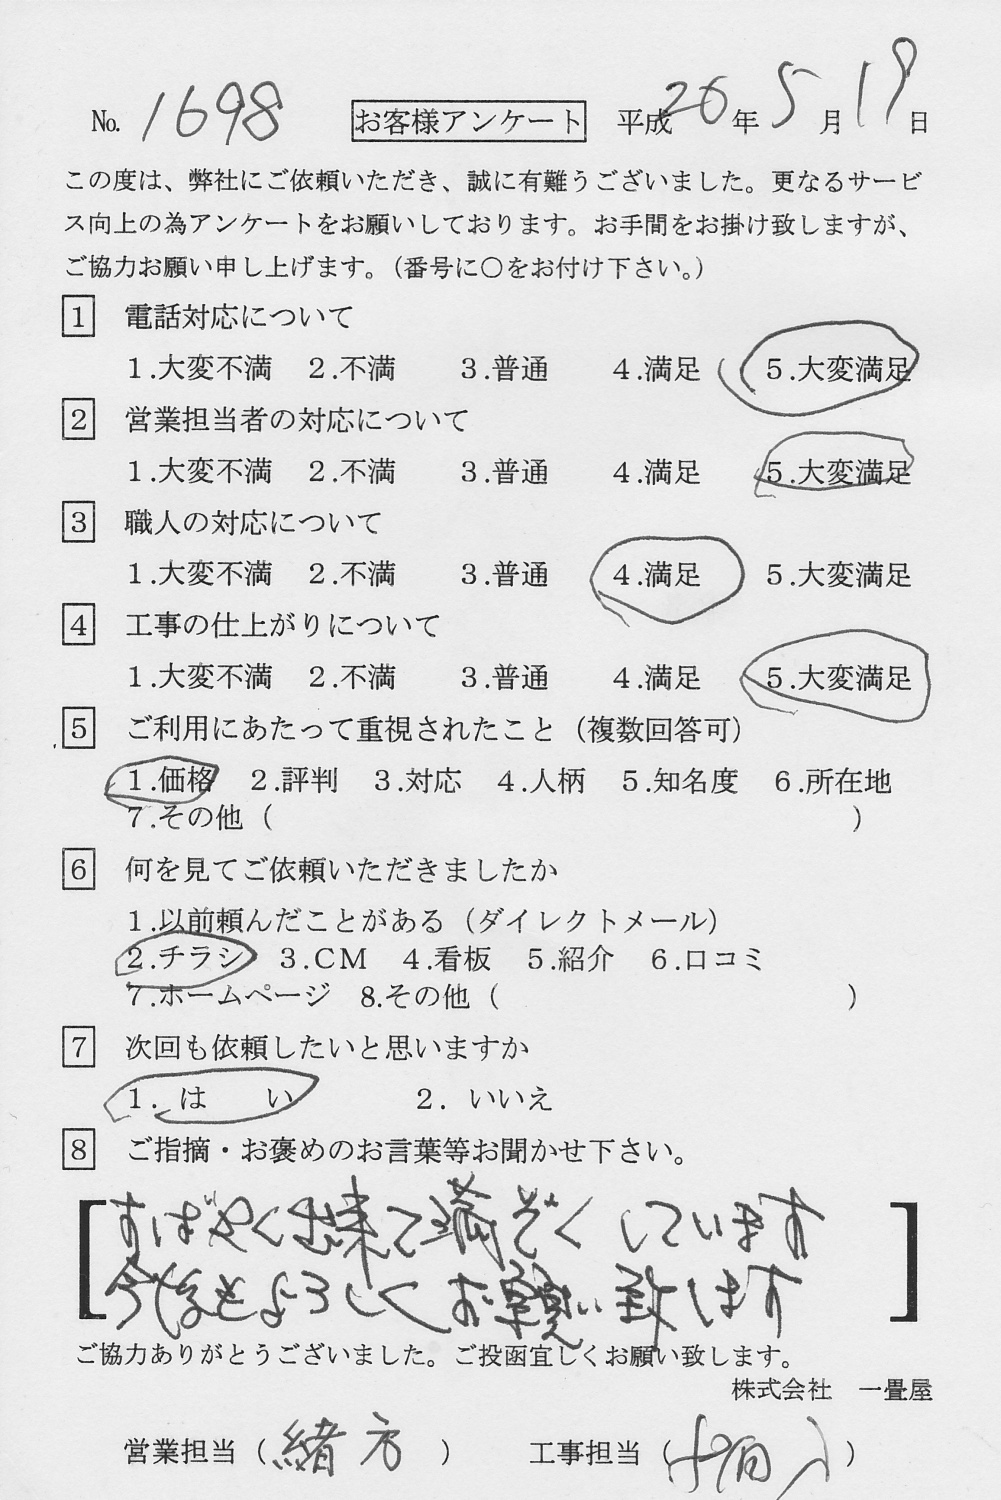 No. 1698 お客様アンケート 平成26年5月19日
この度は、弊社にご依頼いただき、誠に有難うございました。更なるサービ
ス向上の為アンケートをお願いしております。お手間をお掛け致しますが、
ご協力お願い申し上げます。（番号に○をお付け下さい。）
1 電話対応について
1.大変不満 2.不満 3.普通 4.満足 5.大変満足
2 営業担当者の対応について
1.大変不満 2.不満 3.普通 4.満足 5.大変満足
3 職人の対応について
1.大変不満 2.不満 3.普通 4.満足 5.大変満足
4 工事の仕上がりについて
1.大変不満 2.不満 3.普通 4.満足 5.大変満足
5 ご利用にあたって重視されたこと（複数回答可）
1.価格 2.評判 3.対応 4.人柄 5.知名度 6.所在地
7.その他（ ）
6 何を見てご依頼いただきましたか
1.以前頼んだことがある（ダイレクトメール）
2.チラシ 3.CM 4.看板 5.紹介 6.口コミ
7.ホームページ 8.その他（ ）
7 次回も依頼したいと思いますか
1. はい 2. いいえ
8 ご指摘・お褒めのお言葉等お聞かせ下さい。
すばやく出来て満ぞくしています
今後もよろしくお願い致します
ご協力ありがとうございました。ご投函宜しくお願い致します。
株式会社 一畳屋
営業担当（緒方） 工事担当（ ）